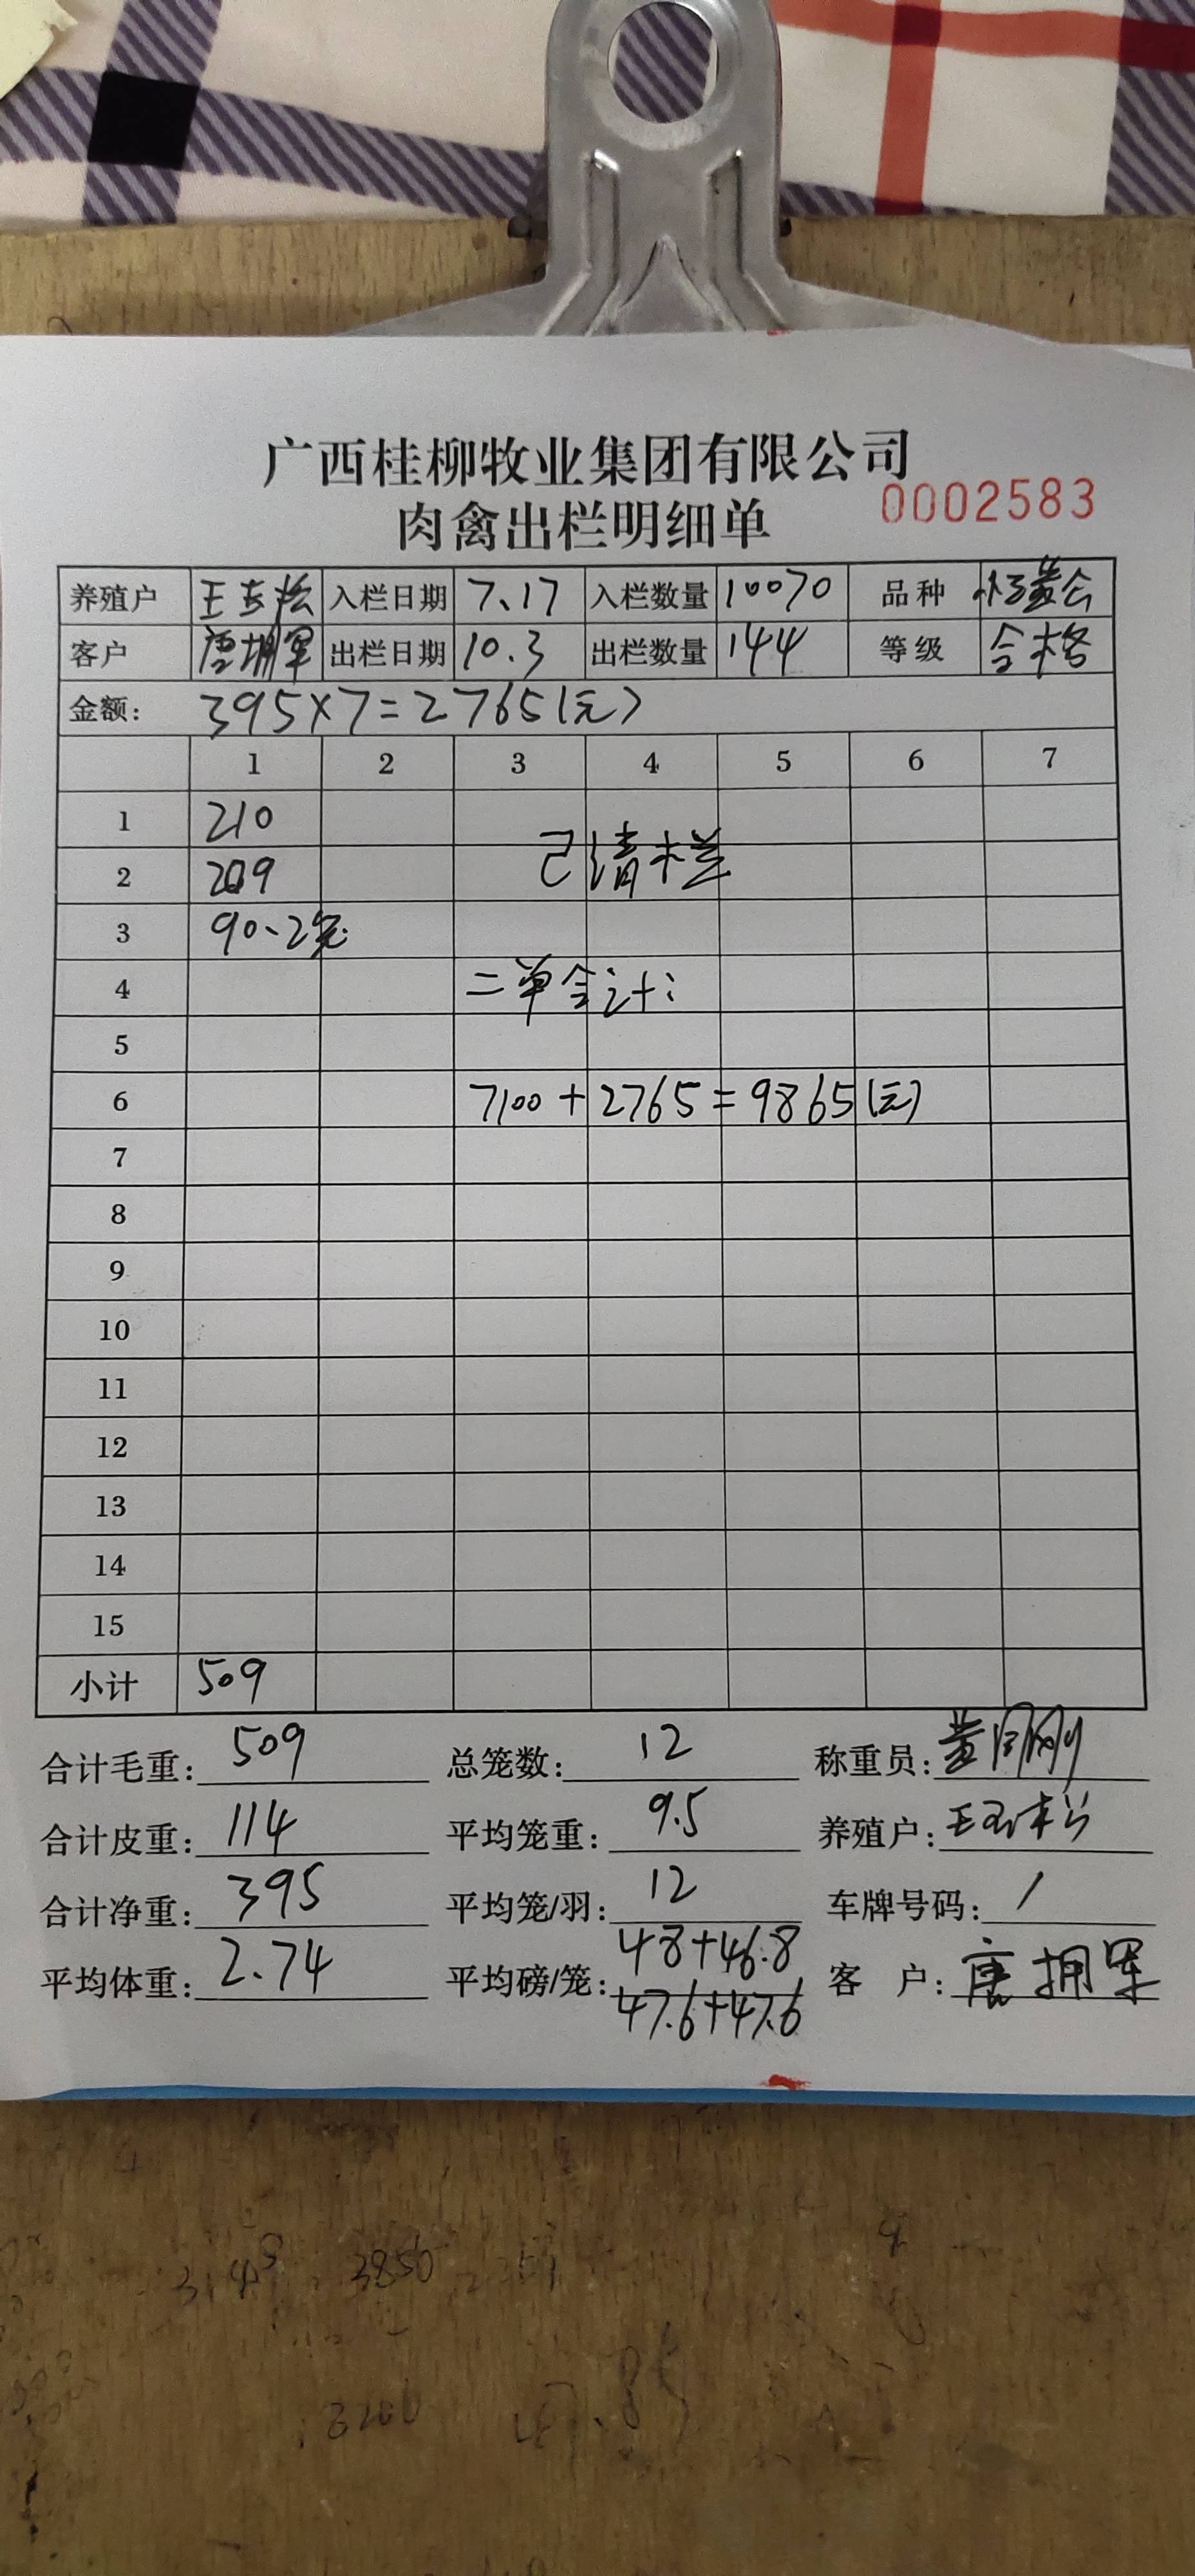 广西桂柳牧业集团有限公司
肉禽出栏明细单 0002583
养殖户 王玉松 入栏日期 7.17 入栏数量 10070 品种
客户 唐拥军 出栏日期 10.3 出栏数量 144 等级 合格
金额: 395×7=2765(元)
1 2 3 4 5 6 7
1 210
2 209 已清栏
3 90.2笼
4 二单合计:
5
6 7100+2765=9865(元)
7
8
9
10
11
12
13
14
15
小计 509
合计毛重: 509 总笼数: 12 称重员: 黄刚
合计皮重: 114 平均笼重: 9.5 养殖户: 王玉松
合计净重: 395 平均笼/羽: 12 车牌号码: /
平均体重: 2.74 平均磅/笼: 48+46.8 客 户: 唐拥军
47.6+47.6
3850
3200